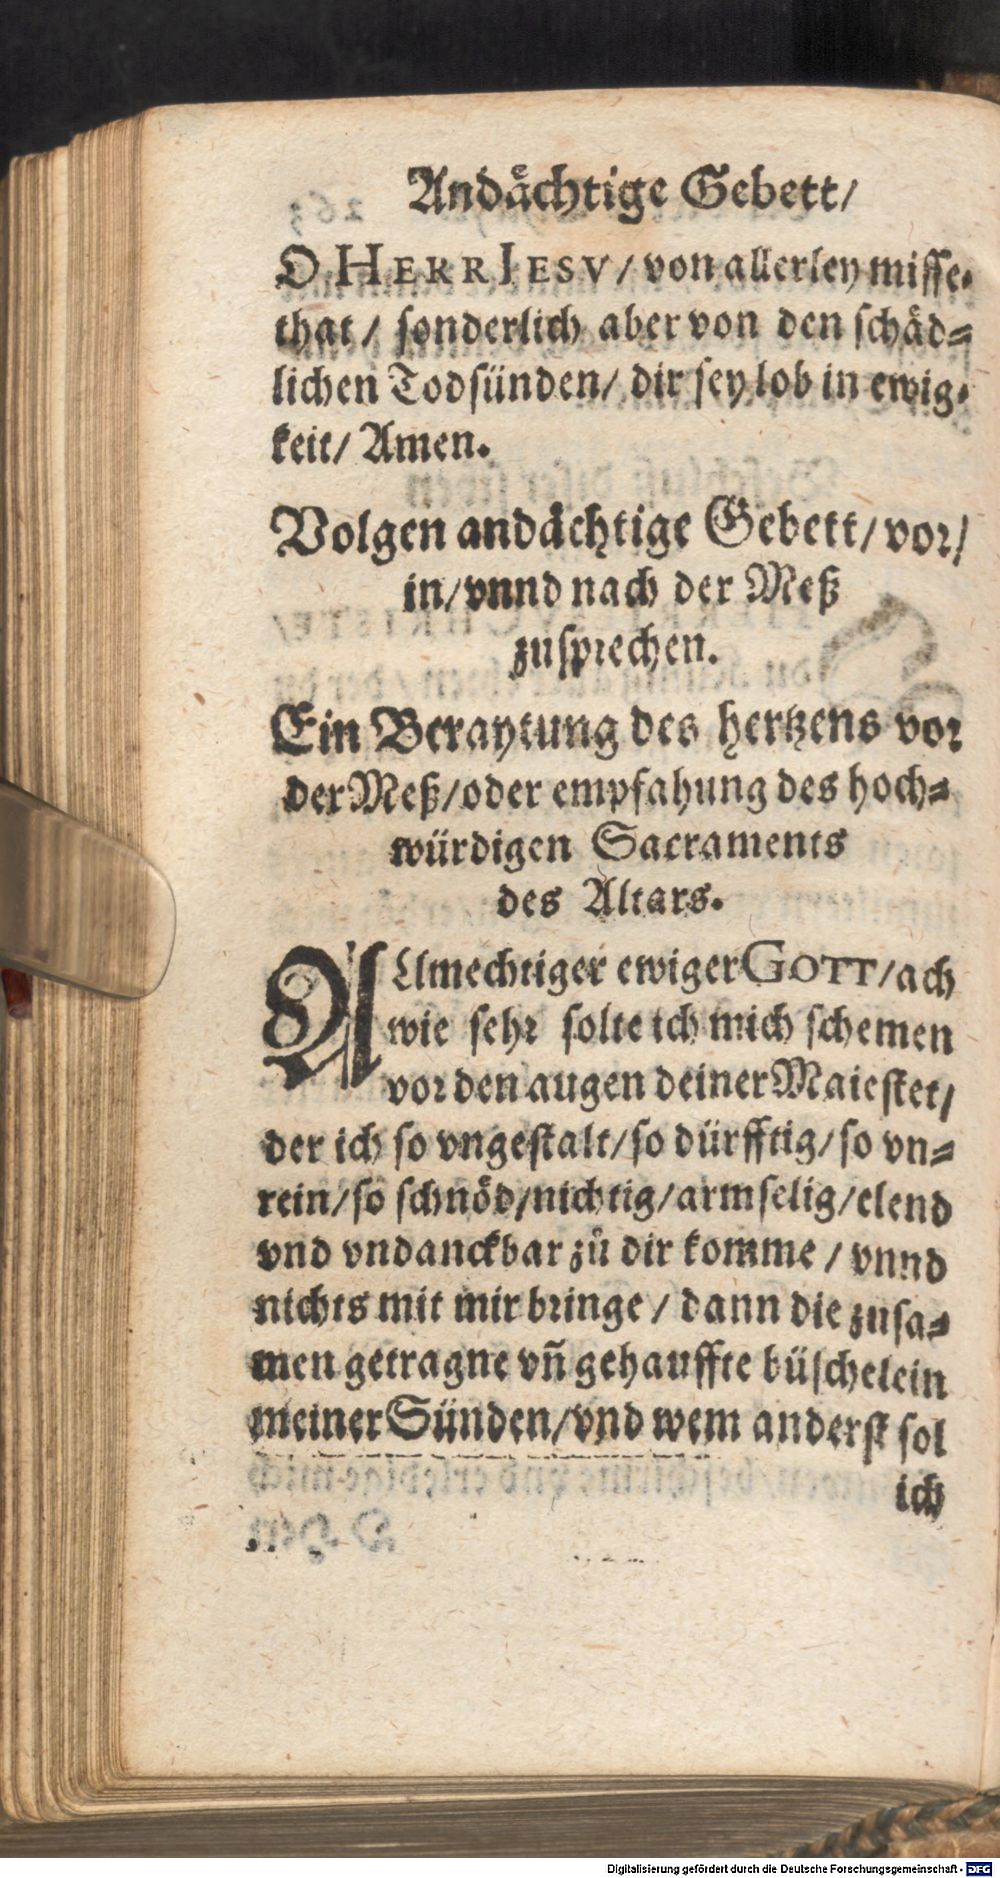 Andaͤchtige Gebett/
O HERR IESV/ von allerley misse-
that/ sonderlich aber von den schaͤd-
lichen Todsünden/ dir sey lob in ewig-
keit/ Amen.
Volgen andaͤchtige Gebett/ vor/
in/ vnnd nach der Meß
zusprechen.
Ein Beraytung des hertzens vor
der Meß/ oder empfahung des hoch-
würdigen Sacraments
des Altars.
ALlmechtiger ewiger GOTT/ ach
wie sehr solte ich mich schemen
vor den augen deiner Maiestet/
der ich so vngestalt/ so dürfftig/ so vn-
rein/ so schnoͤd/ nichtig/ armselig/ elend
vnd vndanckbar zuͦ dir komme/ vnnd
nichts mit mir bringe/ dann die zusa-
men getragne vñ gehauffte büschelein
meiner Sünden/ vnd wem anderst sol
ich
Digitalisierung gefördert durch die Deutsche Forschungsgemeinschaft - DFG